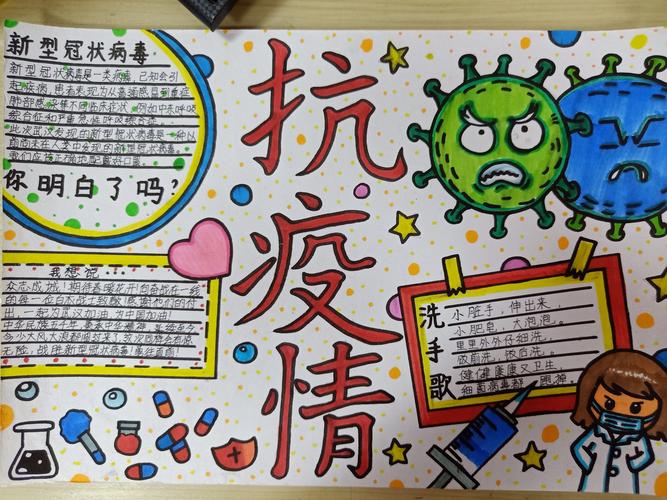 新型冠状病毒
新型冠状病毒是一类病毒,已知会引
起疾病,患者表现为从普通感冒到重症
肺部感染等不同临床症状,例如中东呼吸
综合征和严重急性呼吸综合症。
此次武汉发现的新型冠状病毒是一种以
前尚未在人类中发现的新型冠状病毒。
我们应该正确地配戴好口罩。
你明白了吗?
抗疫情
我想说
众志成城!期待春暖花开!向奋战在一线
的每一位白杰战士致敬!感谢他们的付
出,一起为武汉加油!为中国加油!
中华民族五千年
多少大风大浪都闯过来了,这次同样会有惊
无险,战胜新型冠状病毒!勇往直前!
洗手歌
小脏手,伸出来,
小肥皂,大泡泡。
里里外外仔细洗,
饭前洗,饭后洗。
健健康康又卫生
细菌病毒都跑掉。